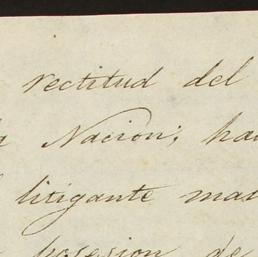 rectitud del
Nacion; ha
litigante ma
posesion de